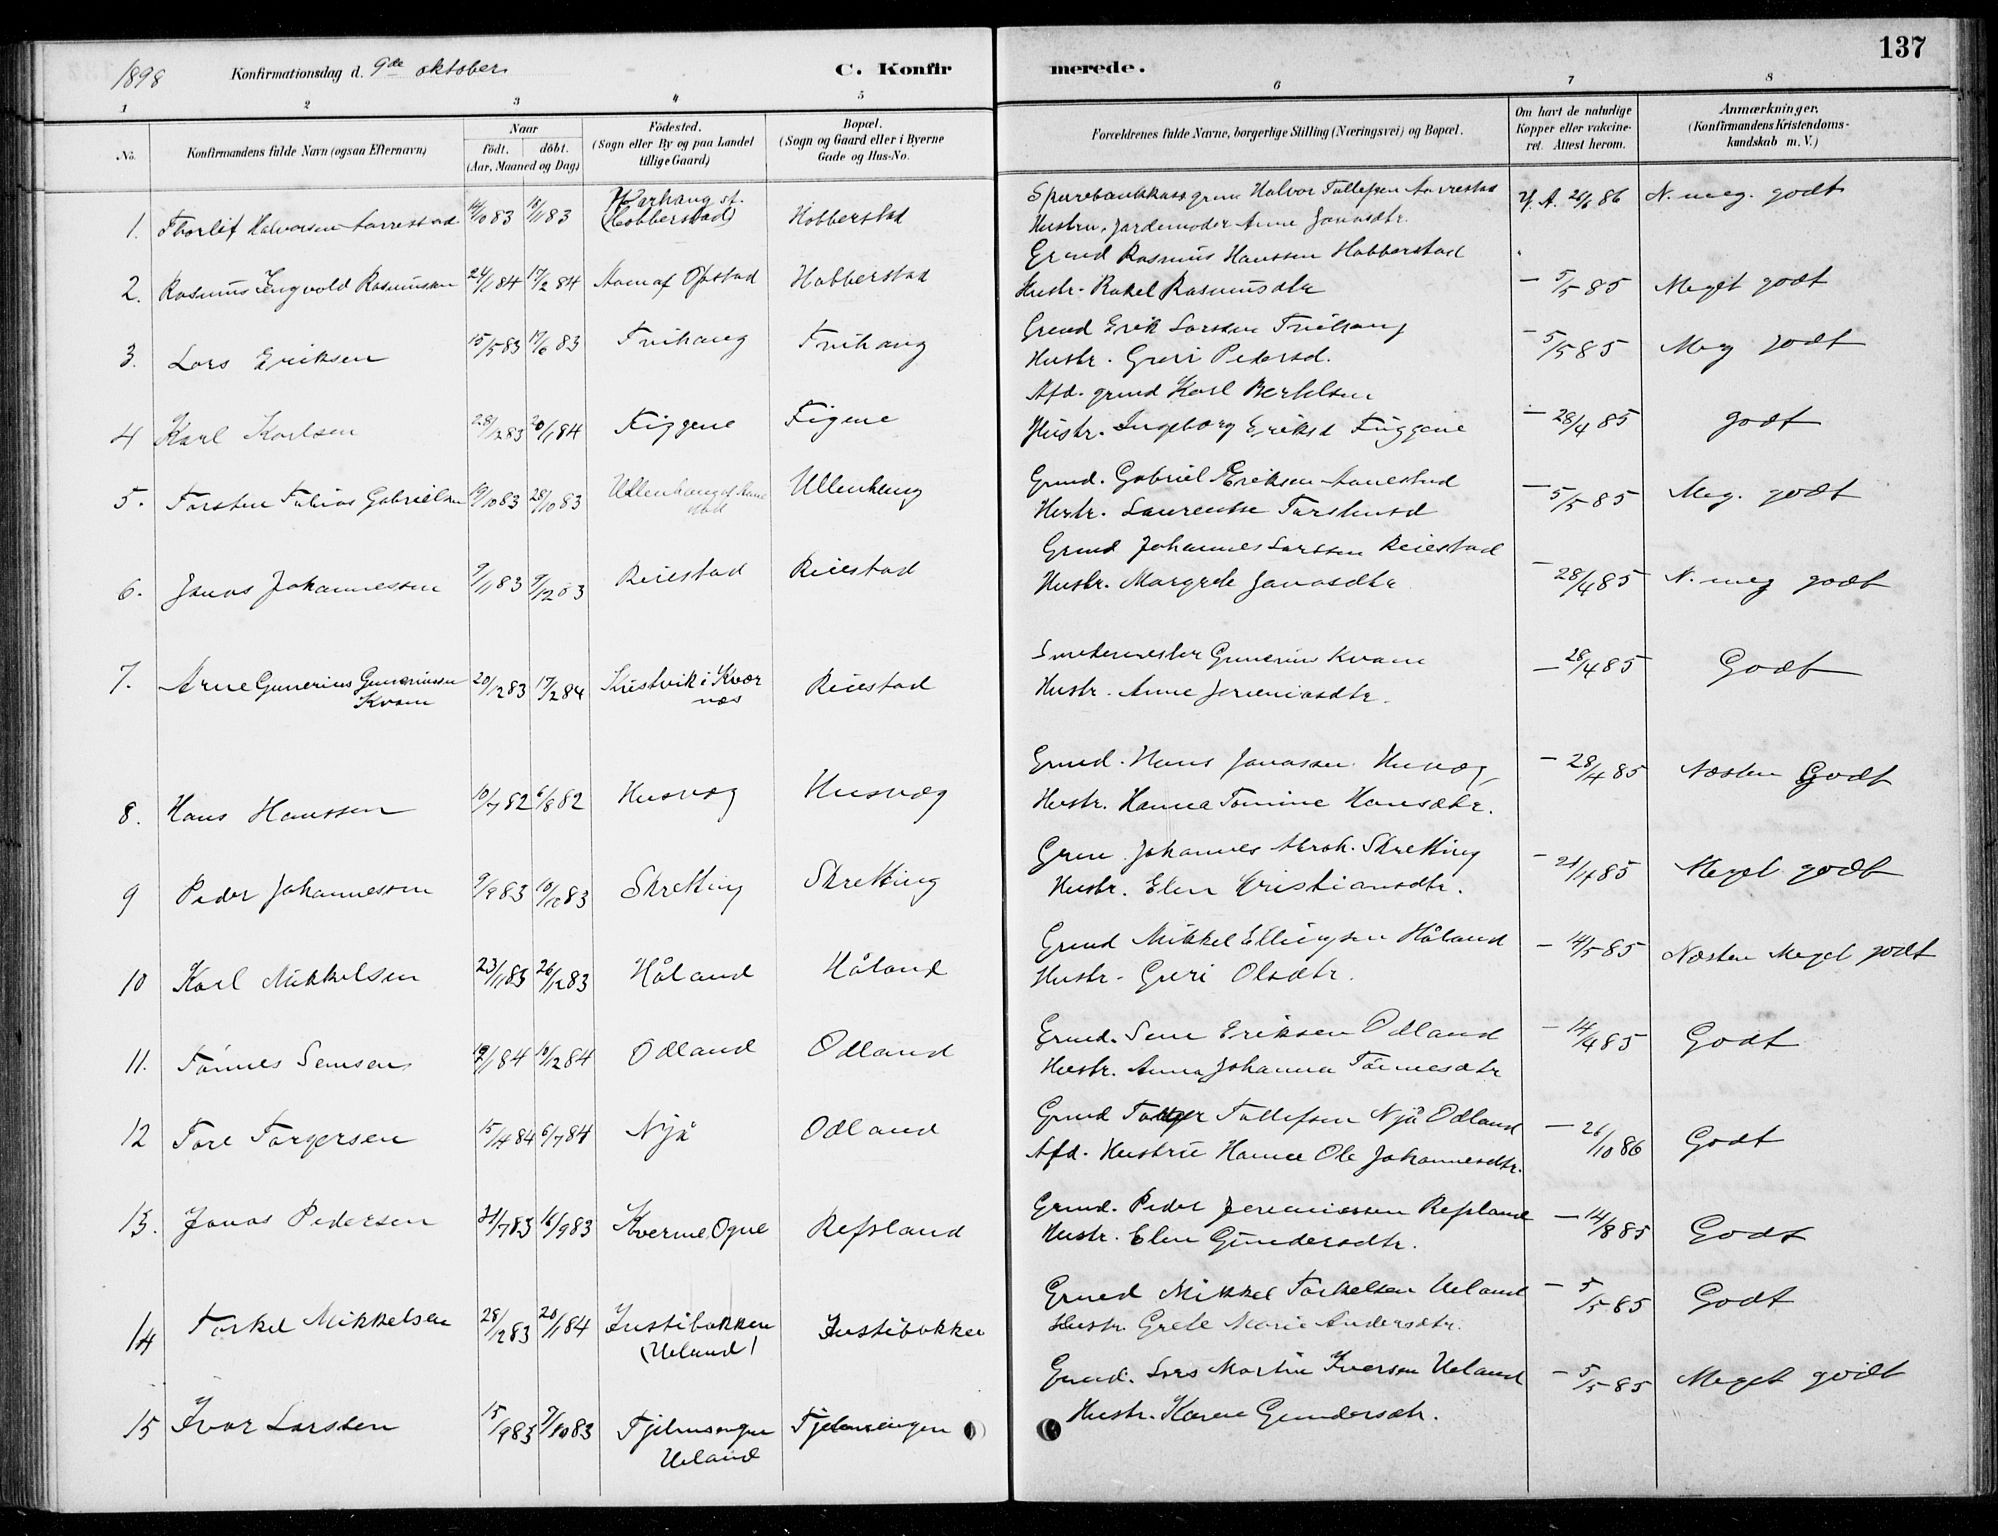 137
1898 Konfirmationsdag d. 9de oktober C. Konfirmerede.
1 2 3 4 5 6 7 8
No.
Konfirmandens fulde Navn (ogsaa Efternavn)
Naar
födt. döbt.
(Aar, Maaned og Dag)
Födested.
(Sogn eller By og paa Landet
tillige Gaard)
Bopæl.
(Sogn og Gaard eller i Byerne
Gade og Hus-No.
Forældrenes fulde Navne, borgerlige Stilling (Næringsvei) og Bopæl.
Om havt de naturlige
Kopper eller vakcine-
ret. Attest herom.
Anmærkninger.
(Konfirmandens Kristendoms-
kundskab m. V.)
1. Thorlif Halvorsen Aarrestad 14/10 83 18/11 83 Varhaug st. (Hobberstad) Hobberstad
Sparebankkass grm Halvor Tollefsen Aarrestad
Hustru, Jordemoder Anne Jonasdtr.
Y. A. 26/6 86 N. meg. godt
2. Rasmus Ingvald Rasmussen 24/1 84 17/2 84 Opstad Hobberstad
Grmd Rasmus Hanssen Hobberstad
Hustr. Rakel Rasmusdtr
— 5/5 85 Meget godt
3. Lars Eriksen 15/5 83 17/6 83 Tvihaug Tvihaug
Grmd Erik Larssen Tvihaug
Hustr. Guri Pedersd.
— 5/5 85 Meg godt
4 Karl Karlsen 28/12 83 20/1 84 Figgene Figene
Afd. grmd Karl Bertelsen
Hustr. Ingeborg Eriksd Figgene
— 28/4 85 godt
5. Torsten Tobias Gabrielsen 19/10 83 28/10 83 Ullenhaug Ullenhaug
Grmd. Gabriel Eriksen Aarrestad
Hustr. Laurentse Torstensd
— 5/5 85 Meg. godt
6. Jonas Johannessen 9/11 83 9/12 83 Reiestad Reiestad
Grmd Johannes Larssen Reiestad
Hustr. Margrete Jonasdtr
— 28/4 85 N. meg godt
7. Arne Gunerius Guneriussen Kvam 20/12 83 17/2 84 Kristvik i Kvær næs Reiestad
Smedemester Gunerius Kvam
Hustr. Anne Jeremiasdtr.
— 28/4 85 Godt
8. Hans Hanssen 10/7 82 6/8 82 Husvæg Husvæg
Grmd. Hans Jonassen Husvæg
Hustr. Hanna Tomine Hansdtr.
— 28/4 85 Næsten Godt
9 Peder Johannessen 9/9 83 10/10 83 Skretting Skretting
Grm. Johannes Abrah. Skretting
Hustr. Elen Kristiansdtr.
— 21/4 85 Meget godt
10 Karl Mikkelsen 23/11 83 26/12 83 Håland Håland
Grmd Mikkel Ellingsen Håland
Hustr. Guri Olsdtr.
— 14/5 85 Næsten Meget godt
11. Tönnes Semsen 19/1 84 10/2 84 Odland Odland
Grmd. Sem Eriksen Odland
Hustr. Anna Johanna Tönnesdtr
— 14/4 85 Godt
12 Tore Torgersen 15/4 84 6/7 84 Njå Odland
Grmd Torger Tollefsen Njå Odland
Afd. Hustru Hanna Ole Johannesdtr.
— 26/10 86 Godt
13. Jonas Pedersen 31/7 83 16/9 83 Kverme Ogne Refsland
Grmd. Peder Jeremiassen Refsland
Hustr. Elen Gundersdtr.
— 14/8 85 Godt
14 Torkel Mikkelsen 28/12 83 20/1 84 Instibakken (Ueland) Instibakken
Grmd Mikkel Torkelsen Ueland
Hustr. Grete Marie Andersdtr.
— 5/5 85 Godt
15 Ivar Larssen 15/9 83 7/10 83 Fjelmsengen Ueland Fjelmsengen
Grmd. Lars Martin Iversen Ueland
Hustr. Karen Gundersdtr.
— 5/5 85 Meget godt